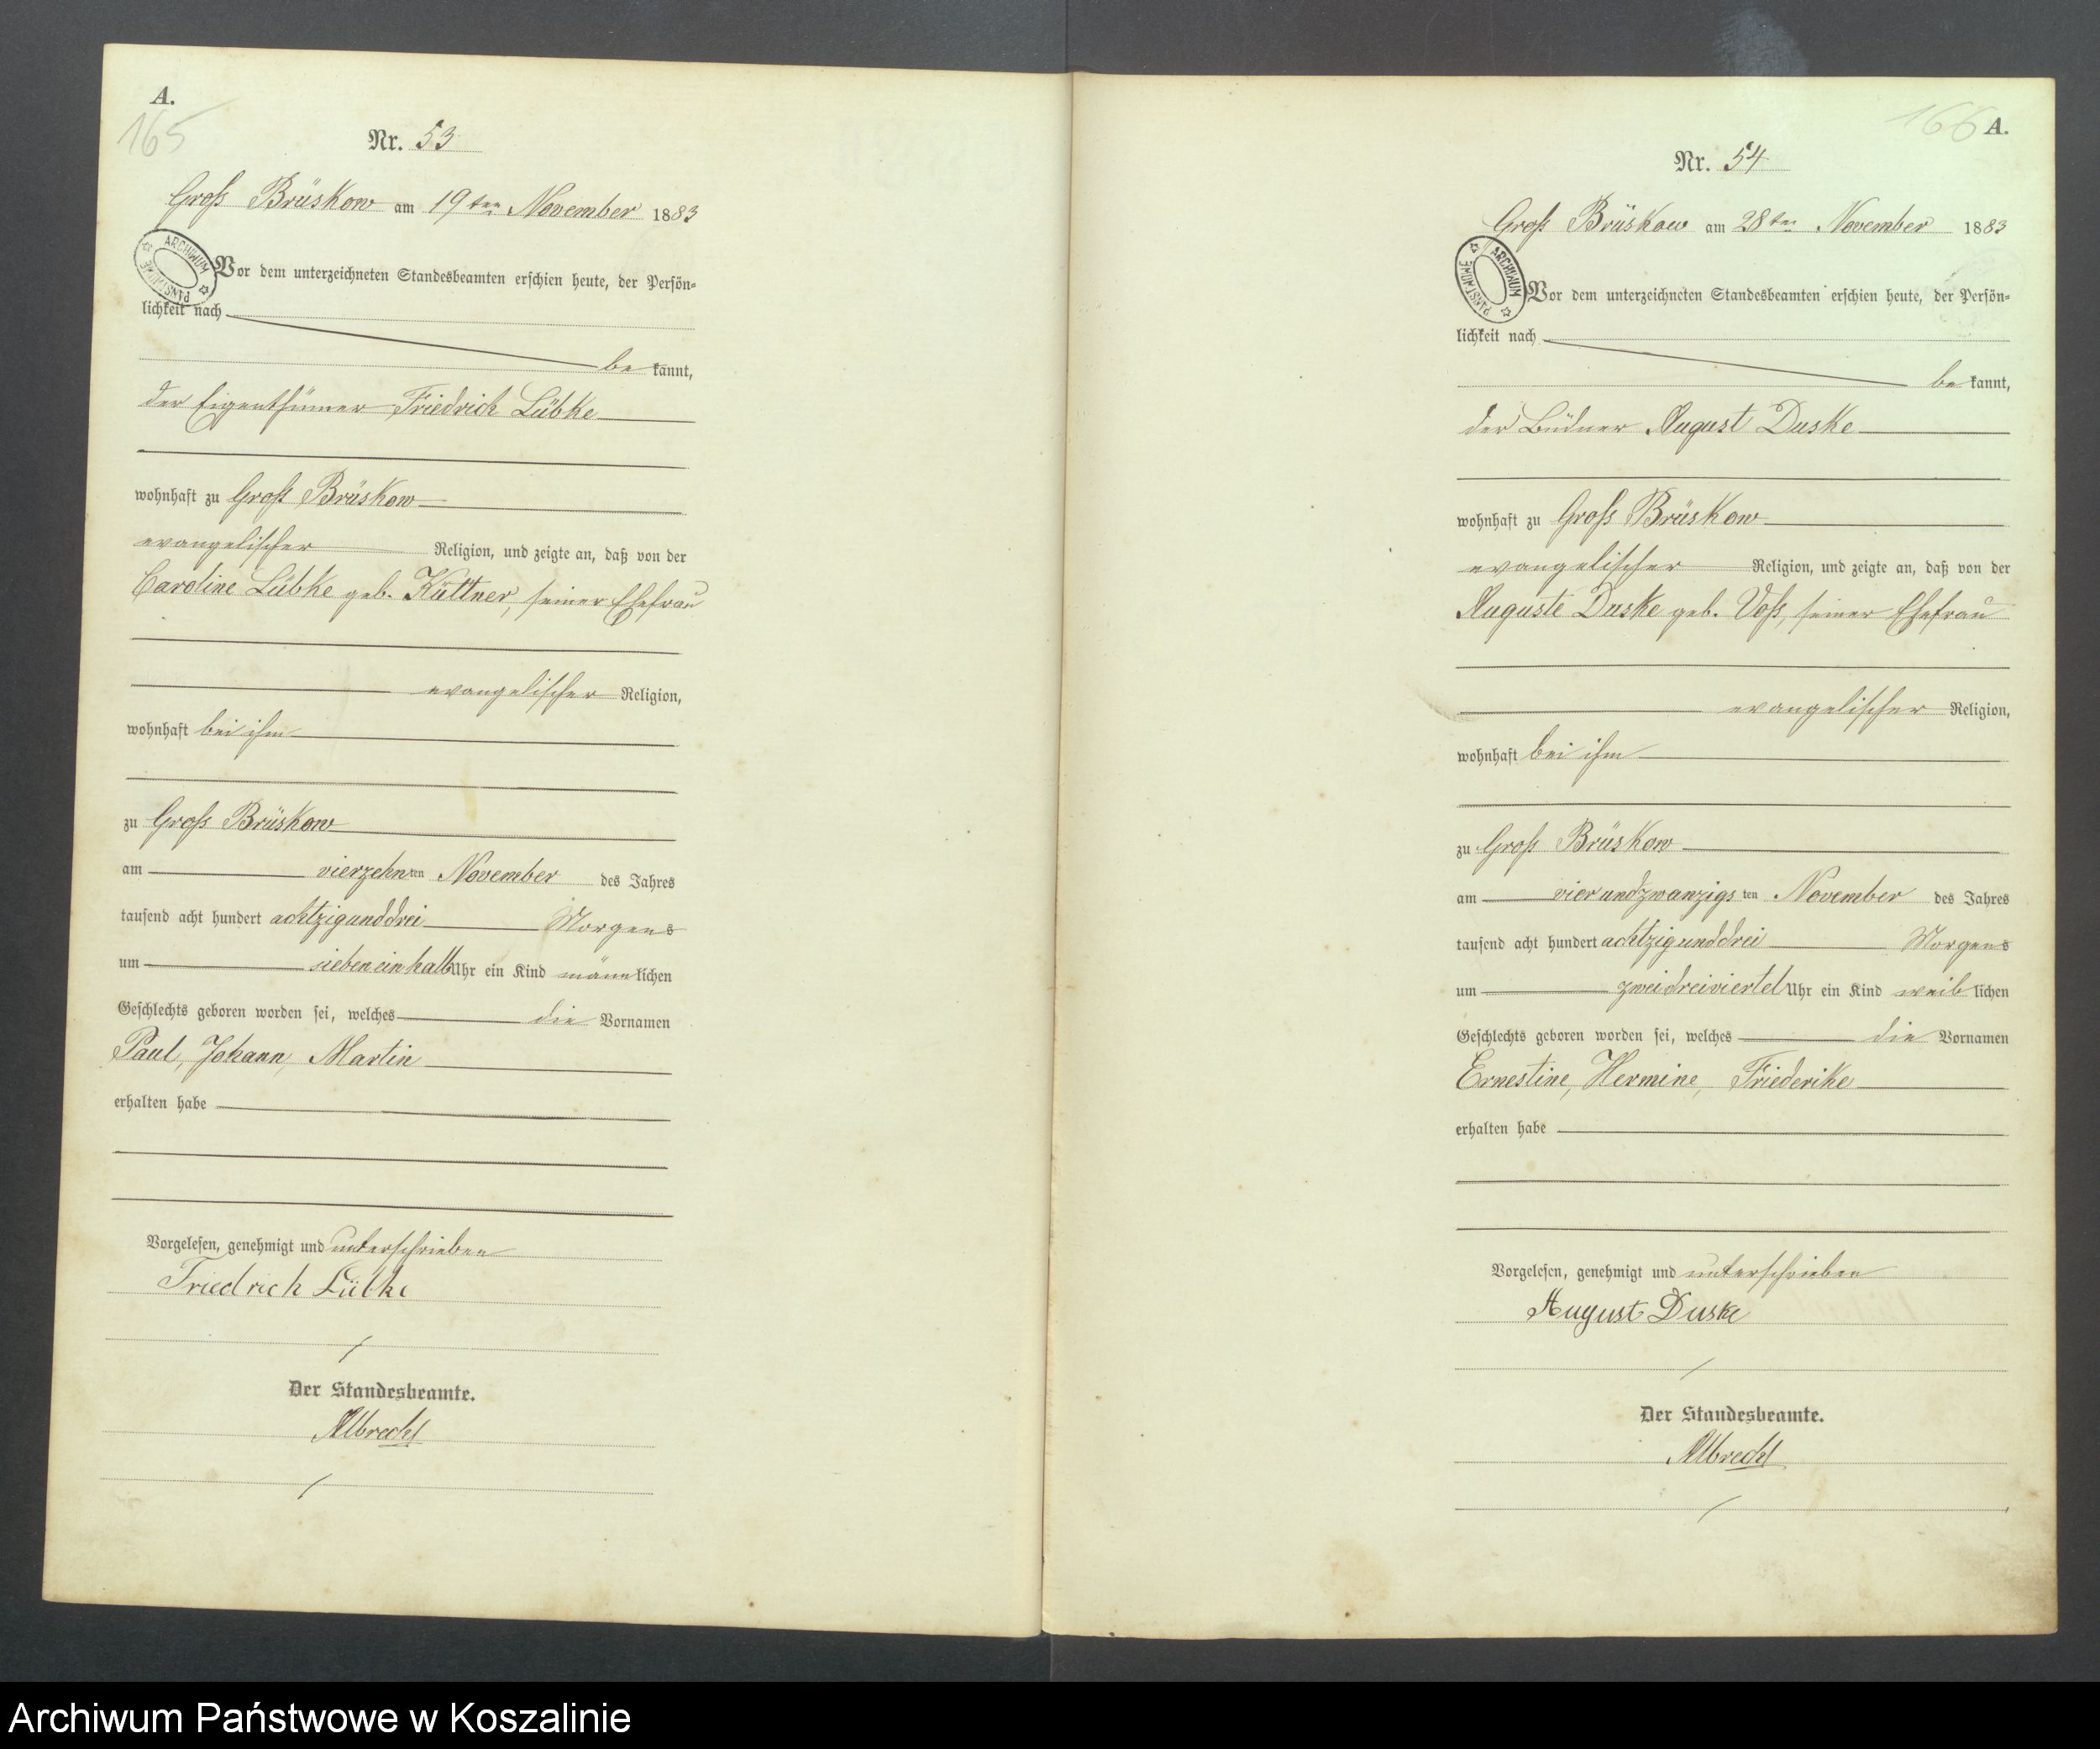 A.
165
Nr. 53
Groß Brüskow am 19ten November 1883
ARCHIWUM PAŃSTWOWE
Vor dem unterzeichneten Standesbeamten erschien heute, der Persön-
lichkeit nach
be kannt,
der Eigenthümer Friedrich Lübke
wohnhaft zu Groß Brüskow
evangelischer Religion, und zeigte an, daß von der
Caroline Lübke geb. Küttner, seiner Ehefrau
evangelischer Religion,
wohnhaft bei ihm
zu Groß Brüskow
am vierzehnten November des Jahres
tausend acht hundert achtzigunddrei Morgens
um siebeneinhalb Uhr ein Kind männlichen
Geschlechts geboren worden sei, welches die Vornamen
Paul, Johann, Martin
erhalten habe
Vorgelesen, genehmigt und unterschrieben
Friedrich Lübke
Der Standesbeamte.
Albrecht
166 A.
Nr. 54
Groß Brüskow am 28ten November 1883
ARCHIWUM PAŃSTWOWE
Vor dem unterzeichneten Standesbeamten erschien heute, der Persön-
lichkeit nach
be kannt,
der Büdner August Duske
wohnhaft zu Groß Brüskow
evangelischer Religion, und zeigte an, daß von der
Auguste Duske geb. Voß, seiner Ehefrau
evangelischer Religion,
wohnhaft bei ihm
zu Groß Brüskow
am vierundzwanzigsten November des Jahres
tausend acht hundert achtzigunddrei Morgens
um zweidreiviertel Uhr ein Kind weiblichen
Geschlechts geboren worden sei, welches die Vornamen
Ernestine, Hermine, Friederike
erhalten habe
Vorgelesen, genehmigt und unterschrieben
August Duske
Der Standesbeamte.
Albrecht
Archiwum Państwowe w Koszalinie